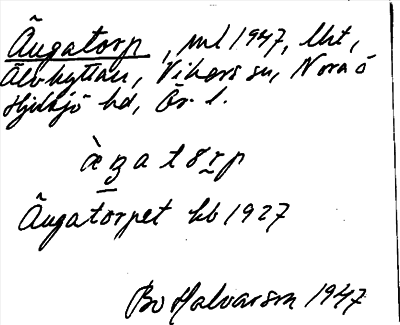 Ängatorp, ml 1947, lht,
Älvhyttan, Vikers sn, Nora o
Hjulsjö hd, Ör. l.
àŋatorp
Ängatorpet kb 1927
Bo Halvarson 1947